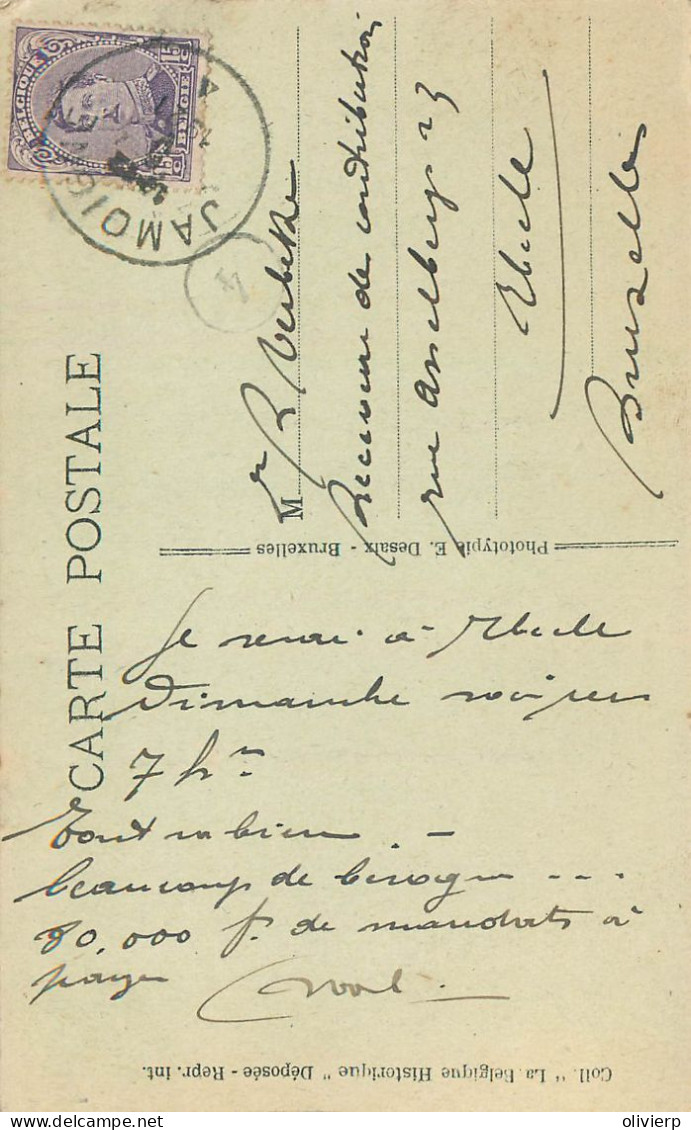 BELGIQUE BELGIË
15 15
JAMOIG
4
CARTE POSTALE
M r R Verbeke
Receveur de contributions
rue Anselberg 23
Uccle
Bruxelles
Phototypie E. Desaix - Bruxelles
Je serai à Uccle
Dimanche soir vers
7 hres
Tout va bien. -
beaucoup de besogne ...
80,000 f. de mandats à
payer
Coll. " La Belgique Historique " Déposée - Repr. int.
delcampe.net
olivierp